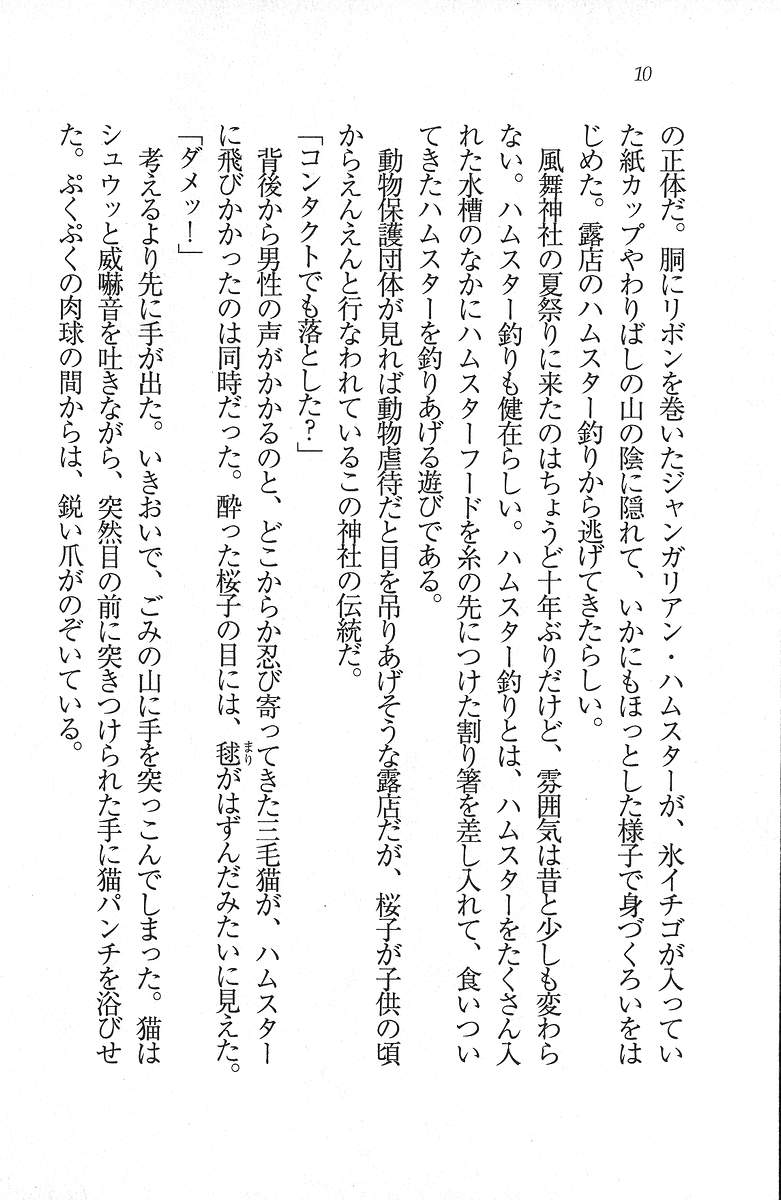 10
の正体だ。胴にリボンを巻いたジャンガリアン・ハムスターが、氷イチゴが入ってい
た紙カップやわりばしの山の陰に隠れて、いかにもほっとした様子で身づくろいをは
じめた。露店のハムスター釣りから逃げてきたらしい。
風舞神社の夏祭りに来たのはちょうど十年ぶりだけど、雰囲気は昔と少しも変わら
ない。ハムスター釣りも健在らしい。ハムスター釣りとは、ハムスターをたくさん入
れた水槽のなかにハムスターフードを糸の先につけた割り箸を差し入れて、食いつい
てきたハムスターを釣りあげる遊びである。
動物保護団体が見れば動物虐待だと目を吊りあげそうな露店だが、桜子が子供の頃
からえんえんと行なわれているこの神社の伝統だ。
「コンタクトでも落とした？」
背後から男性の声がかかるのと、どこからか忍び寄ってきた三毛猫が、ハムスター
に飛びかかったのは同時だった。酔った桜子の目には、毬がはずんだみたいに見えた。
まり
「ダメッ！」
考えるより先に手が出た。いきおいで、ごみの山に手を突っこんでしまった。猫は
シュウッと威嚇音を吐きながら、突然目の前に突きつけられた手に猫パンチを浴びせ
た。ぷくぷくの肉球の間からは、鋭い爪がのぞいている。